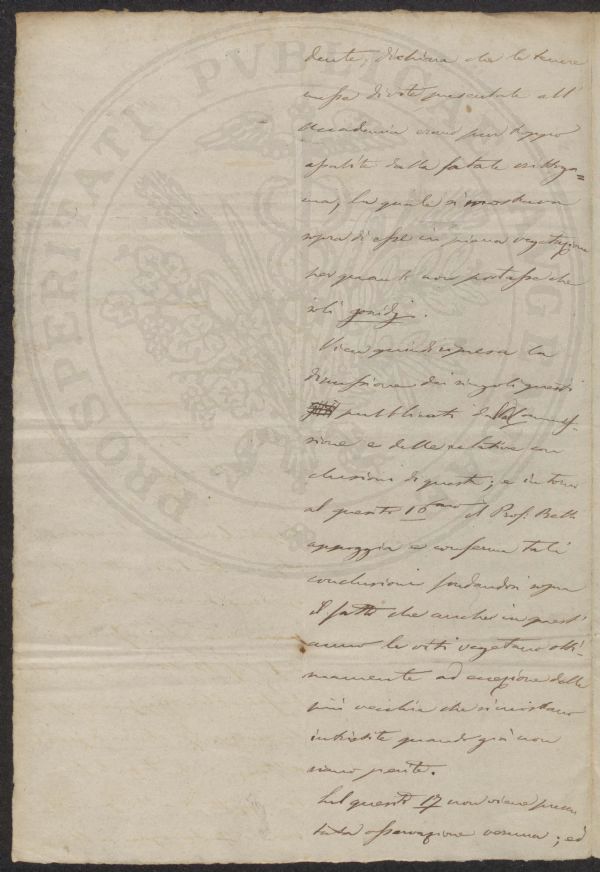 PROSPERITATI PUBLICAE AUGENDAE
dente, dichiara che le tenere
messe di vite presentate all'
Accademia erano pur troppo
assalite dalla fatale crittoga=
ma, la quale si mostrava
sopra di esse in piena vegetazione
per quanto non portasse che
soli gonidj.
Vien quindi ripresa la
discussione dei singoli quesiti
pubblicati dalla Commis-
sione e delle relative con
clusioni di questi; e intorno
al quesito 16mo il Prof. Belli
appoggia e conferma tali
conclusioni fondandosi sopra
il fatto che anche in quest'
anno le viti vegetano otti-
mamente ad eccezione delle
più vecchie che si mostrano
intristite quando già non
siano perite.
Sul quesito 17 non viene presen
tata osservazione veruna; ed